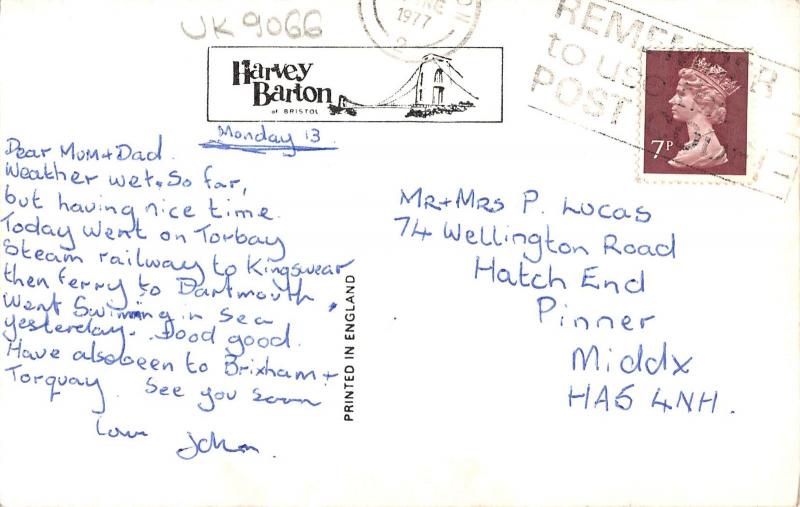 UK 9066
JUNE
1977
REMEMBER
to use
POST
Harvey
Barton
of BRISTOL
7P
Monday 13
Dear Mum + Dad.
Weather wet. So far,
but having nice time.
Today went on Torbay
Steam railway to Kingswear
then ferry to Dartmouth,
Went Swimming in Sea
yesterday. Dood good.
Have also been to Brixham +
Torquay. See you soon
Love
John.
PRINTED IN ENGLAND
Mr + Mrs P. Lucas
74 Wellington Road
Hatch End
Pinner
Middx
HA5 4NH.